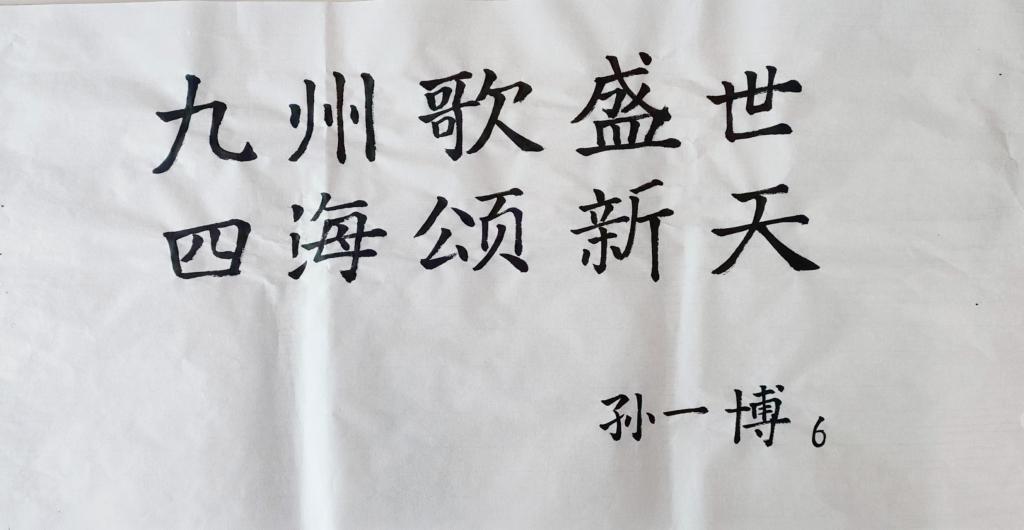 九州歌盛世
四海颂新天
孙一博6